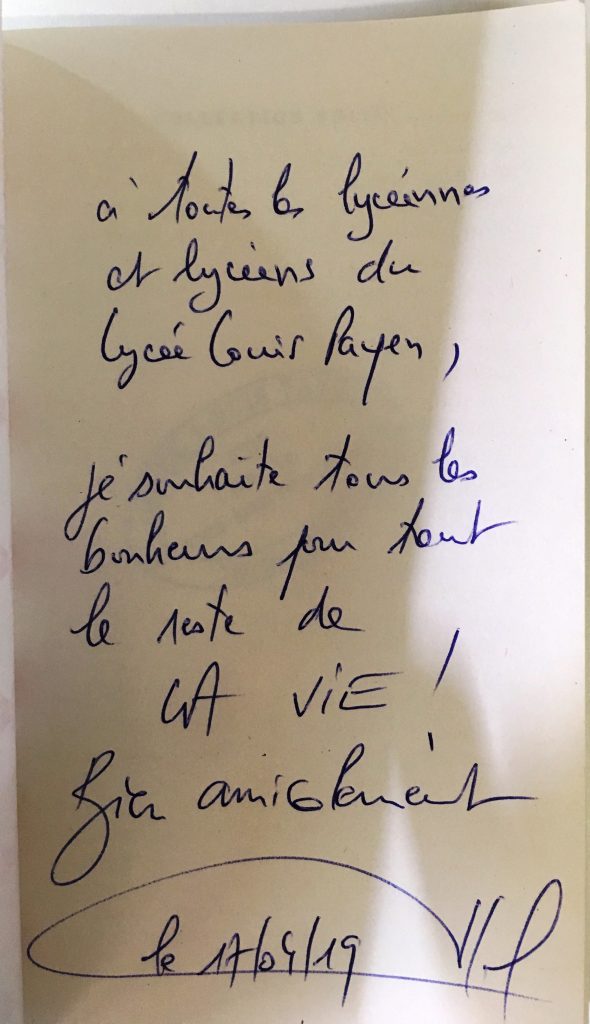 à toutes les lycéennes
et lycéens du
lycée Louis Payen,
je souhaite tous les
bonheurs pour tout
le reste de
LA ViE !
Bien amicalement
le 17/04/19